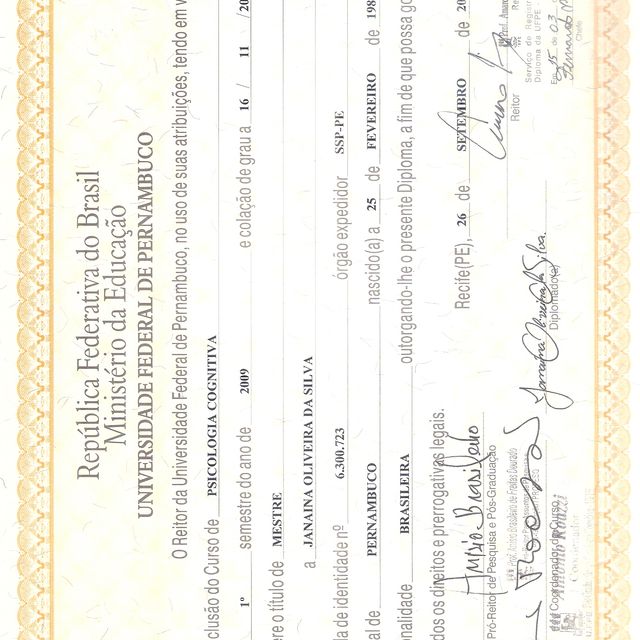 República Federativa do Brasil
Ministério da Educação
UNIVERSIDADE FEDERAL DE PERNAMBUCO
O Reitor da Universidade Federal de Pernambuco, no uso de suas atribuições, tendo em v
clusão do Curso de PSICOLOGIA COGNITIVA
1º semestre do ano de 2009 e colação de grau a 16 / 11 / 20
re o título de MESTRE
a JANAINA OLIVEIRA DA SILVA
la de identidade nº 6.300.723 órgão expedidor SSP-PE
al de PERNAMBUCO nascido(a) a 25 de FEVEREIRO de 198
onalidade BRASILEIRA outorgando-lhe o presente Diploma, a fim de que possa go
dos os direitos e prerrogativas legais.
Recife(PE), 26 de SETEMBRO de 20
Pró-Reitor de Pesquisa e Pós-Graduação
Reitor
Serviço de Registro
Diploma da UFPE
Em 15 de 03
Chefe
Janaina Oliveira da Silva.
Diplomado(a)
Coordenador do Curso